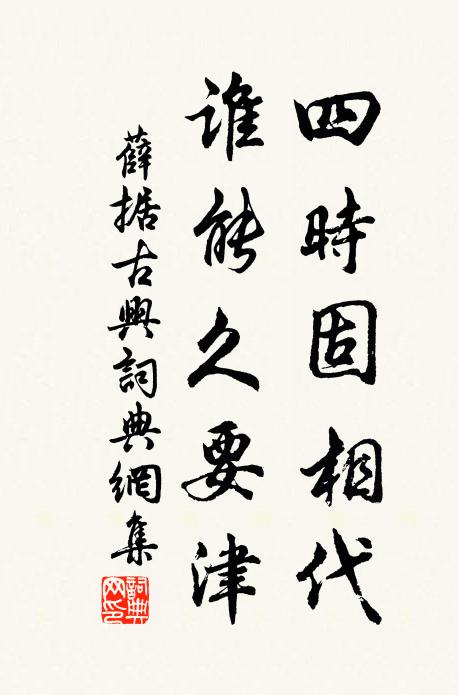 四時固相代
誰能久要津
薛據古興詞典網集
詞典網印